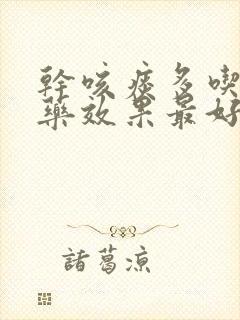 幹咳痰多喫
藥效果最好
諸葛涼